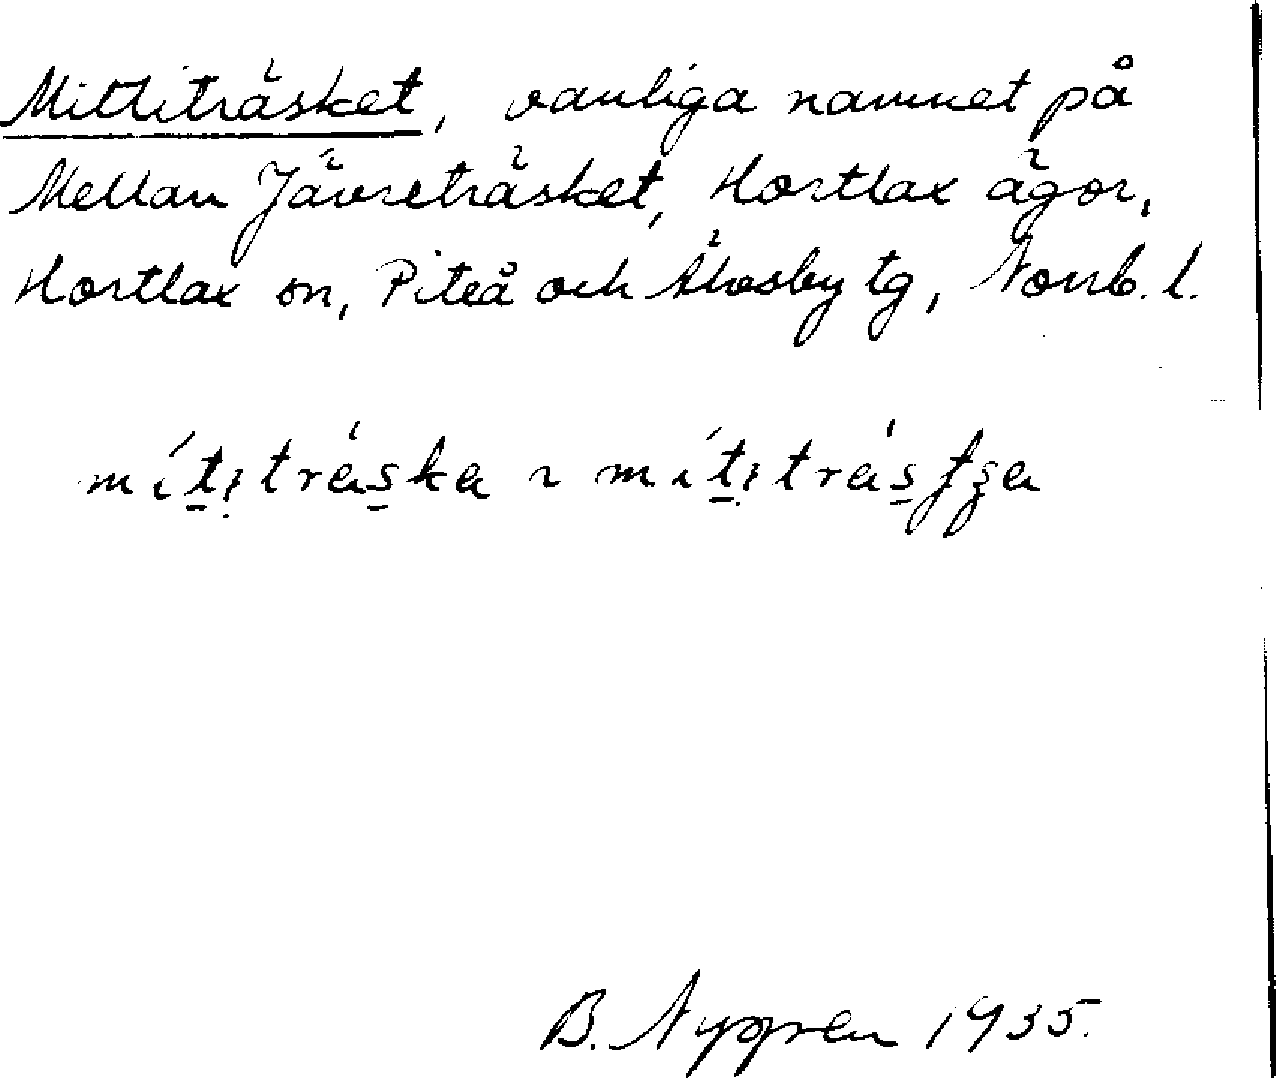 Mittiträsket, vanliga namnet på
Mellan Jävreträsket, Hortlax ägor,
Hortlax sn, Piteå och Älvsby tg, Norrb. l.
mít̲i̩träs̲ka ~ mít̲i̩träs̲
B. Nygren 1935.